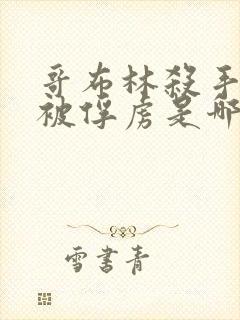 哥布林殺手
被俘虜是哪
雪書青